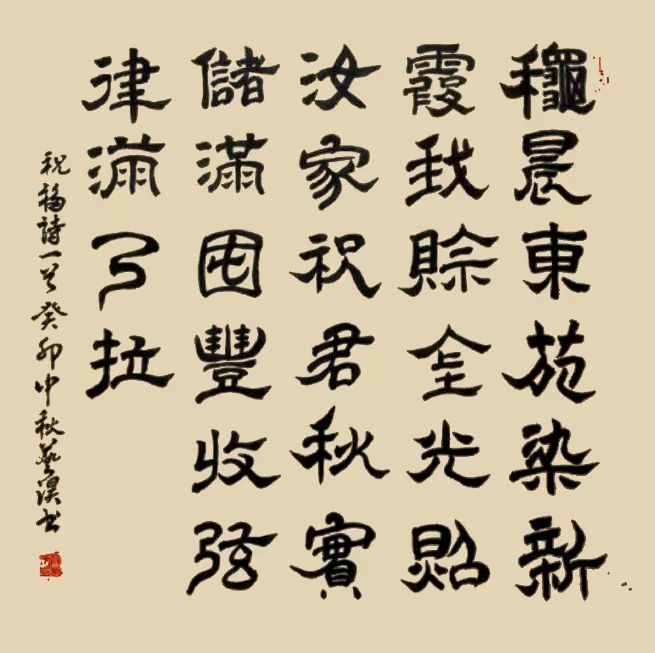 龝晨東苑染新
霞我賒金光照
汝家祝君秋實
儲滿囤豐收弦
律滿了拉
祝福詩一首癸卯中秋藝漠书